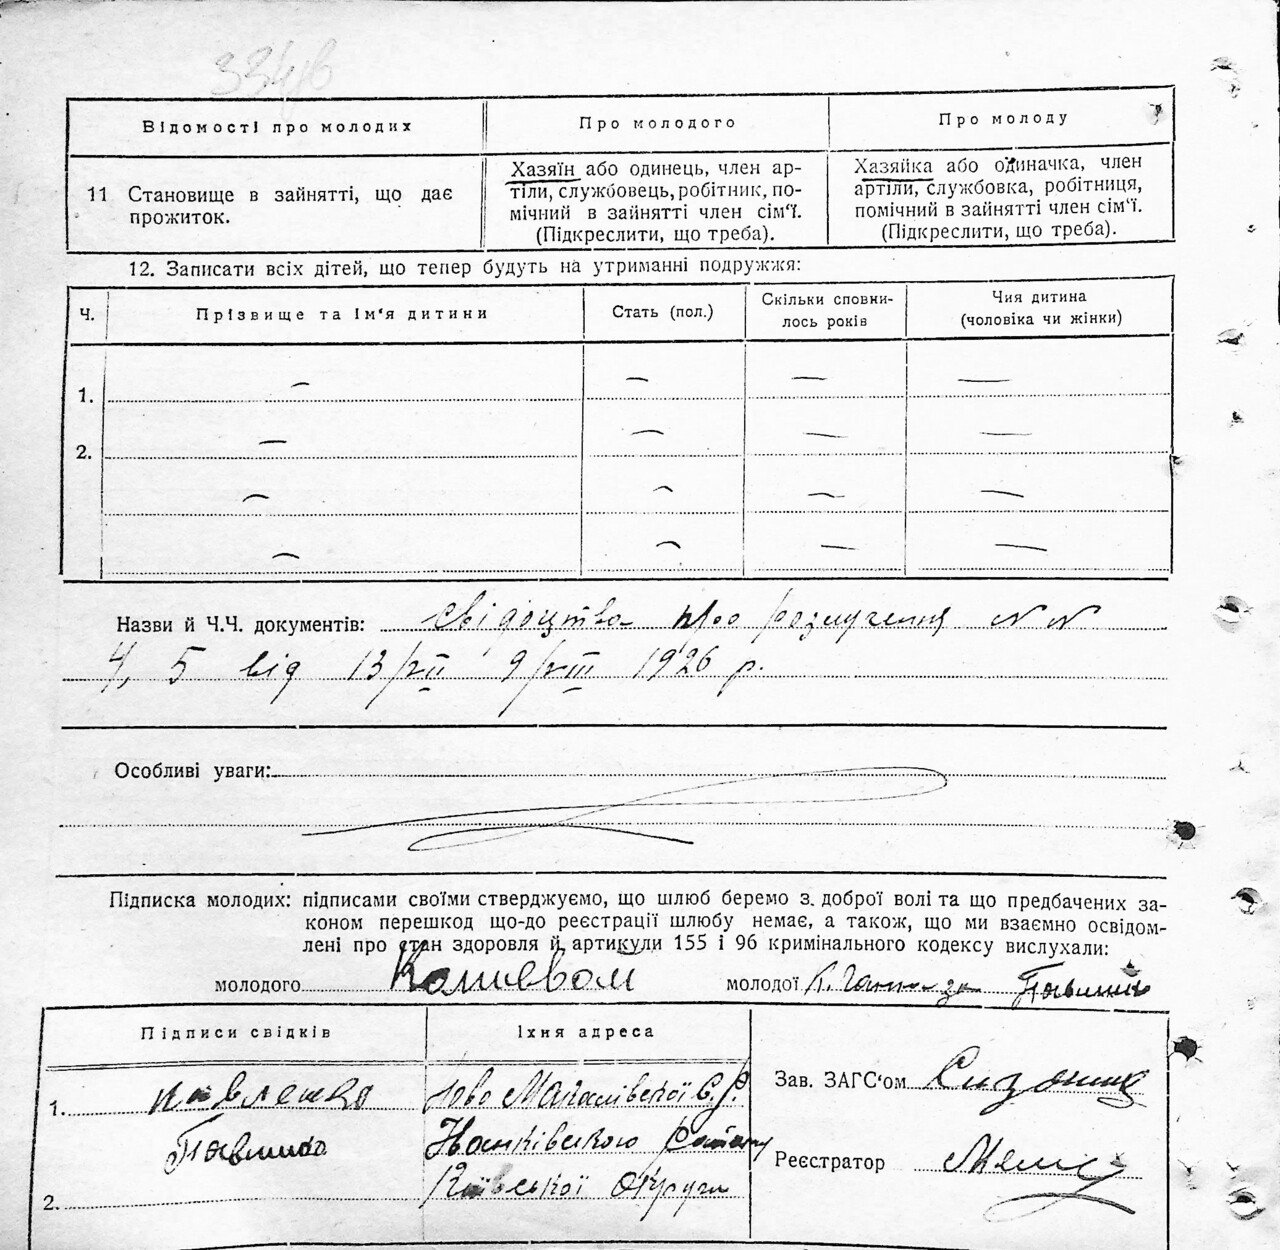 334в
Відомості про молодих
Про молодого
Про молоду
11 Становище в зайнятті, що дає
прожиток.
Хазяїн або одинець, член ар-
тіли, службовець, робітник, по-
мічний в зайнятті член сім'ї.
(Підкреслити, що треба).
Хазяйка або одиначка, член
артіли, службовка, робітниця,
помічний в зайнятті член сім'ї.
(Підкреслити, що треба).
12. Записати всіх дітей, що тепер будуть на утриманні подружжя:
Ч.
Прізвище та Ім'я дитини
Стать (пол.)
Скільки сповни-
лось років
Чия дитина
(чоловіка чи жінки)
1. — — — —
2. — — — —
— — — —
— — — —
Назви й Ч.Ч. документів: свідоцтва про розлучення N N
4, 5 від 13/VII 9/VIII 1926 р.
Особливі уваги:
Підписка молодих: підписами своїми стверджуємо, що шлюб беремо з доброї волі та що предбачених за-
коном перешкод що-до реєстрації шлюбу немає, а також, що ми взаємно освідом-
лені про стан здоровля й артикули 155 і 96 кримінального кодексу вислухали:
молодого
молодої
Підписи свідків
Їхня адреса
1. Павленко
2.
Київської Округи
Зав. ЗАГС'ом
Реєстратор